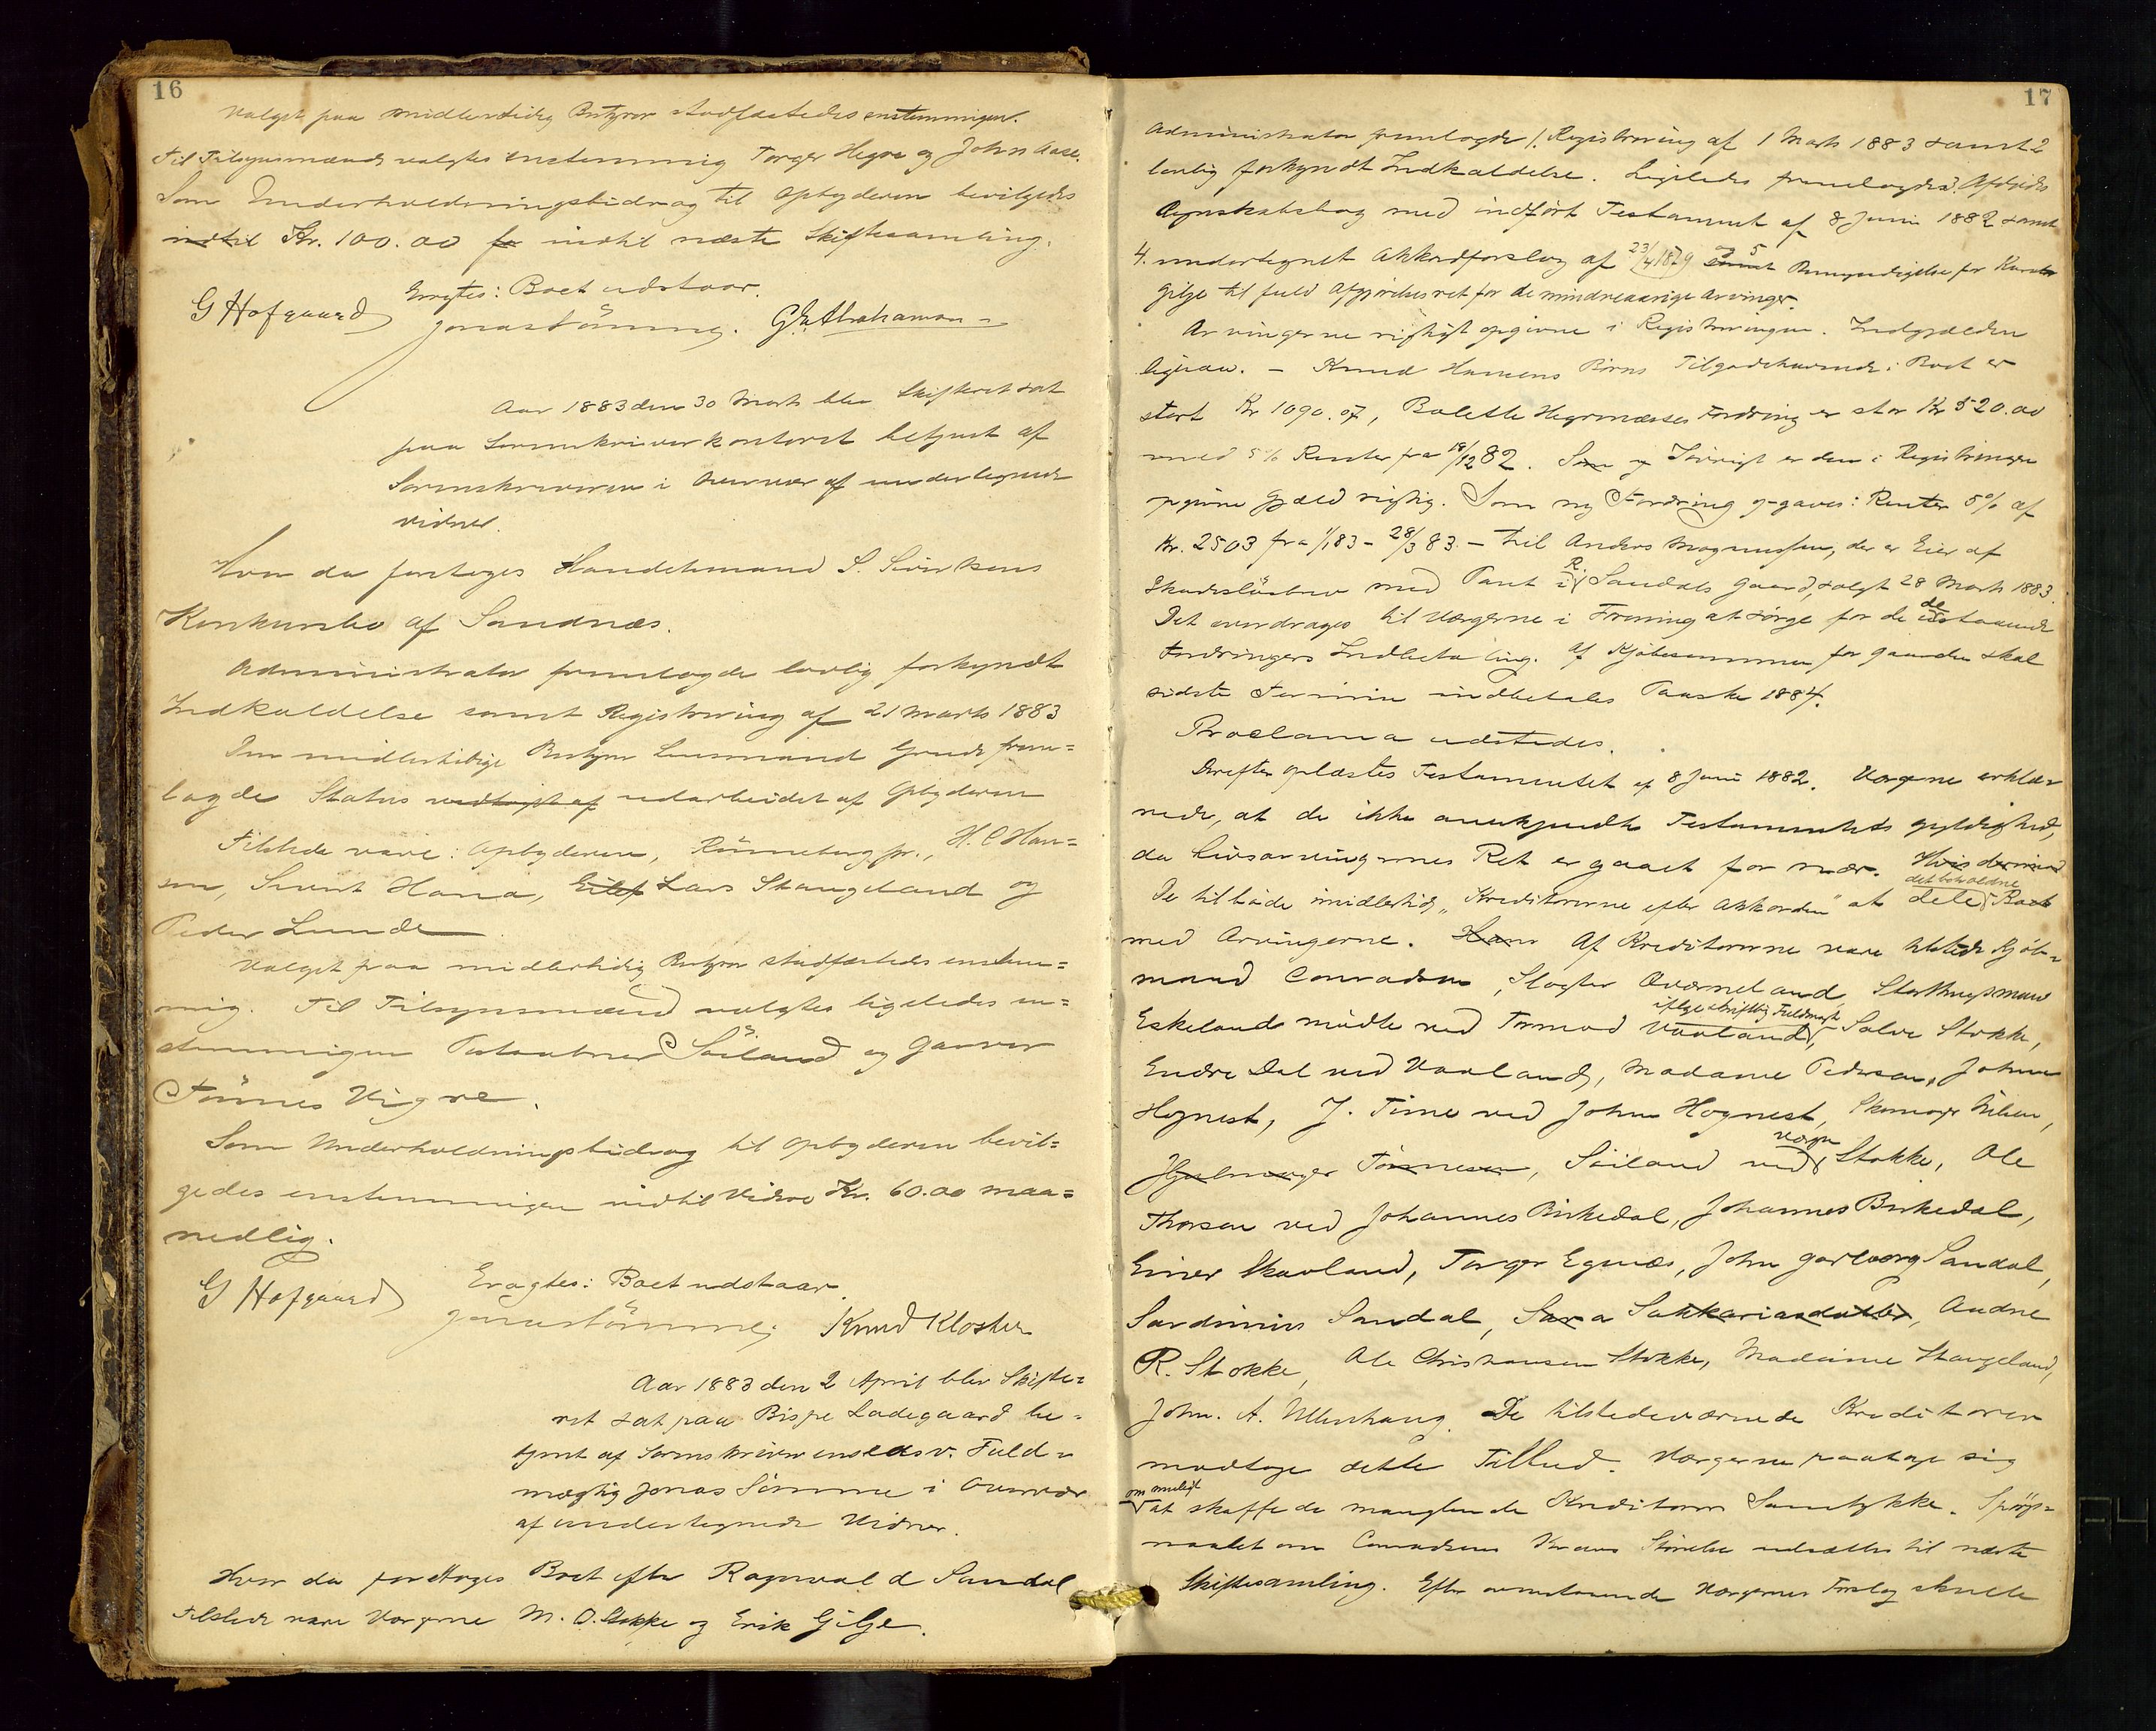 16
Valget paa midlertidig Bestyrer stadfæstedes enstemmigen.
Til Tilsynsmænd valgtes enstemmig Torger Hegre og John Aase.
Som Underholdningsbidrag til Opbyderen bevilgedes
indtil Kr. 100.00 for indtil næste Skiftesamling.
Eragtes: Boet udstaar.
G Hofgaard Jonas Sömme. G. Abrahamsen
Aar 1883 den 30 Marts blev Skifteret sat
paa Sorenskriverkontoret betjent af
Sorenskriveren i Overvær af undertegnede
Vidner.
Hvor da foretoges Handelsmand S. Sivertsens
Konkursbo af Sandnæs.
Administrator fremlagde lovlig forkyndt
Indkaldelse samt Registrering af 21 Marts 1883
Den midlertidige Bestyrer Lensmand Gjerde frem=
lagde Status vedtaget af udarbeidet af Opbyderen
Tilstede vare: Opbyderen, Rönneberg jr., H. C Han=
sen, Sivert Hana, Eilef Lars Stangeland og
Peder Lunde
Valget paa midlertidig Bestyrer stadfæstedes enstem=
mig. Til Tilsynsmænd valgtes ligeledes en=
stemmigen Postaabner Söiland og Garver
Tönnes Vigre.
Som Underholdningsbidrag til Opbyderen bevil=
gedes enstemmigen indtil Videre Kr. 60.00 maa=
nedlig.
Eragtes: Boet udstaar.
G Hofgaard Jonas Sömme; Knud Kloster
Aar 1883 den 2 April blev Skifte=
ret sat paa Bispe Ladegaard be=
tjent af Sorenskriverens edsv. Fuld=
mægtig Jonas Sömme i Overvær
af undertegnede Vidner.
Hvor da foretages Boet efter Ragnvald Sandal
Tilstede vare Værgerne M. O. Stokke og Erik Gilje.
17
Administrator fremlagde 1. Registrering af 1 Marts 1883 samt 2
lovlig forkyndt Indkaldelse. Ligeledes fremlagdes 3. Afdødes
Regnskabsbog med indført Testament af 8 Juni 1882 samt
4. undertegnet Akkordforslag af 23/4 1879 samt og 5 Bemyndigelse for Kurator
Gilje til fuld Afgjørelsesret for de mindreaarige Arvinger.
Arvingerne rigtigt opgivne i Registreringen. Indgjælden
ligesaa. – Knud Hansens Börns Tilgodehavende i Boet er
stort Kr 1090.07, Bolette Hegrenæsses Fordring er stor Kr 520.00
med 5% Renter fra 18/12 82. Som ny Iøvrigt er den i Registreringen
opgivne Gjæld rigtig. Som ny Fordring opgaves: Renter 5% af
Kr. 2503 fra 1/1 83 – 28/3 83 – til Anders Magnussen, der er Eier af
Skadesløsbrev med Pant i R. Sandals Gaard, solgt 28 Marts 1883.
Det overdrages til Værgerne i Forening at sörge for de udestaaende
Fordringers Indbetaling. Af Kjöbesummen for Gaarden skal
sidste Termin indbetales Paaske 1884.
Proclama udstedes.
Derefter oplæstes Testamentet af 8 Juni 1882. Værgerne erklæ=
rede, at de ikke anerkjendte Testamentets Gyldighed,
da Livsarvingernes Ret er gaaet for nær. Hvis derimod
De tilböde imidlertid „Kreditorerne efter Akkorden" at dele det beholdne Boet
med Arvingerne. Hans Af Kreditorerne vare tilstede Kjöb=
mand Conradsen, Slagter Qværneland, Storthingsmand
Eskeland mödte ved Tormod Vaaland ifølge skriftlig Fuldmagt, Salve Stokke,
Endre Dal ved Vaaland, Madame Pedersen, John
Hognest, J. Time ved John Hognest, Skomager Nilsen,
Hjulmager Tönnesen, Söiland ved Værge Stokke, Ole
Thorsen ved Johannes Birkedal, Johannes Birkedal,
Einer Skavland, Torger Egenæs, John Garborg Sandal,
Sardinius Sandal, Sara Sakkariasdatter, Audne
R. Stokke, Ole Christiansen Stokke, Madame Stangeland,
John. A. Ullenhaug. De tilstedeværende Kreditorer
modtoge dette Tilbud. Værgerne paatage sig
om muligt at skaffe de manglende Kreditorers Samtykke. Spörgs=
maalet om Conradsens Kravs Störrelse udsættes til næste
Skiftesamling. Efter ovenstaaende Værgernes Forslag skulle